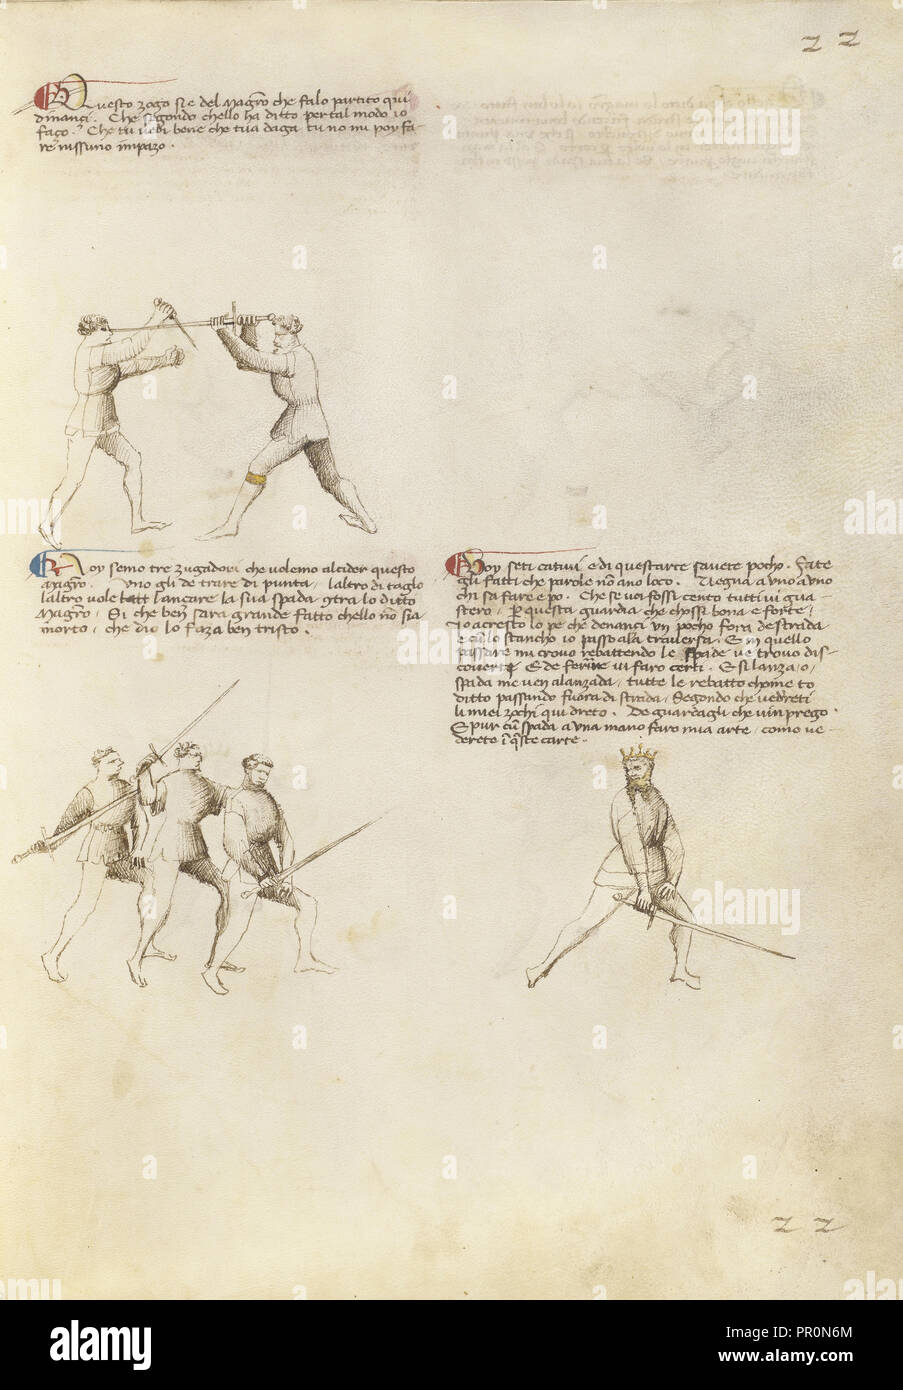 22
Questo zogo si e del Magistro che fa lo partito qui
dinanci. Che segondo chello ha ditto per tal modo io
faço. Che tu vedi bene che tua daga tu no mi poy fa-
re nissuno impazo.
Noy semo tre zugadori che volemo alcider questo
Magistro. Uno gli de trare di punta, l altro di taglo
l altro vole lancare la sua spada contra lo ditto
Magistro, Si che ben sara grande fatto ch ello non sia
morto, che dio lo faza ben tristo.
Voy seti cativi e di questarte savete pocho. Fate
gli fatti che parole non ano loco. Vegna a uno a uno
chi sa fare e po. Che se voi fossi cento tutti vi gua-
stero, per questa guardia che chossi bona e forte.
Io acresco lo pe che denanci un pocho fora de strada
e cum lo stancho io passo ala traversa. E in quello
passare mi crovo rebattendo le spade ve trovo dis-
coverti E de ferire vi faro certi. E si lanza o
spada me ven alanzada, tutte le rebatto chome to
ditto passando fuora di strada, segondo che vedreti
li miei zochi qui dreto. De guardagli che vin prego.
E pur cum spada a una mano faro mia arte, como ve-
derete in queste carte.
22
alamy
alamy
Image ID: PR0N6M
www.alamy.com